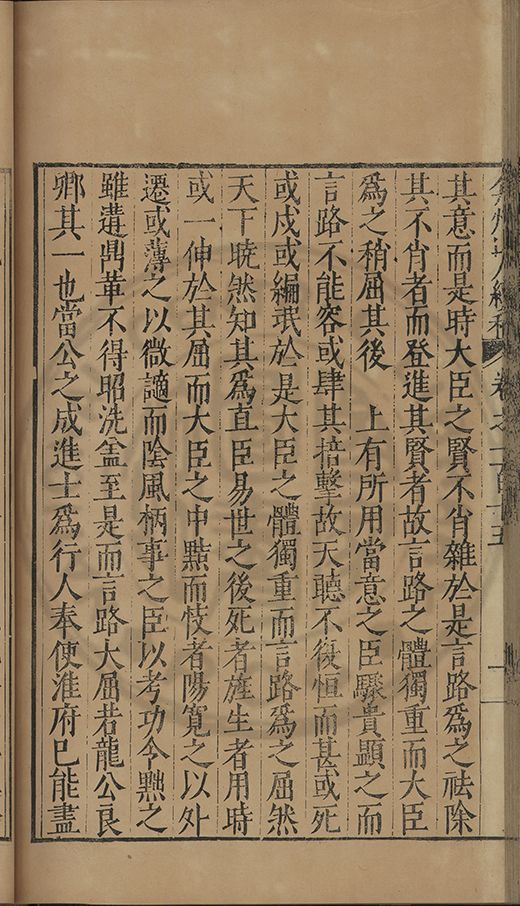 弇州山人續稿 卷之一百十五 一
其意而是時大臣之賢不肖雜於是言路爲之祛除
其不肖者而登進其賢者故言路之體獨重而大臣
爲之稍屈其後 上有所用當意之臣驟貴顯之而
言路不能容或肆其掊擊故天聽不復恒而甚或死
或戍或編珉於是大臣之體獨重而言路爲之屈然
天下曉然知其爲直臣易世之後死者旌生者用時
或一伸於其屈而大臣之中黠而忮者陽寬之以外
遷或薄之以微謫而陰風柄事之臣以考功令黜之
雖遘鼎革不得昭洗盖至是而言路大屈若龍公良
卿其一也當公之成進士爲行人奉使淮府已能盡